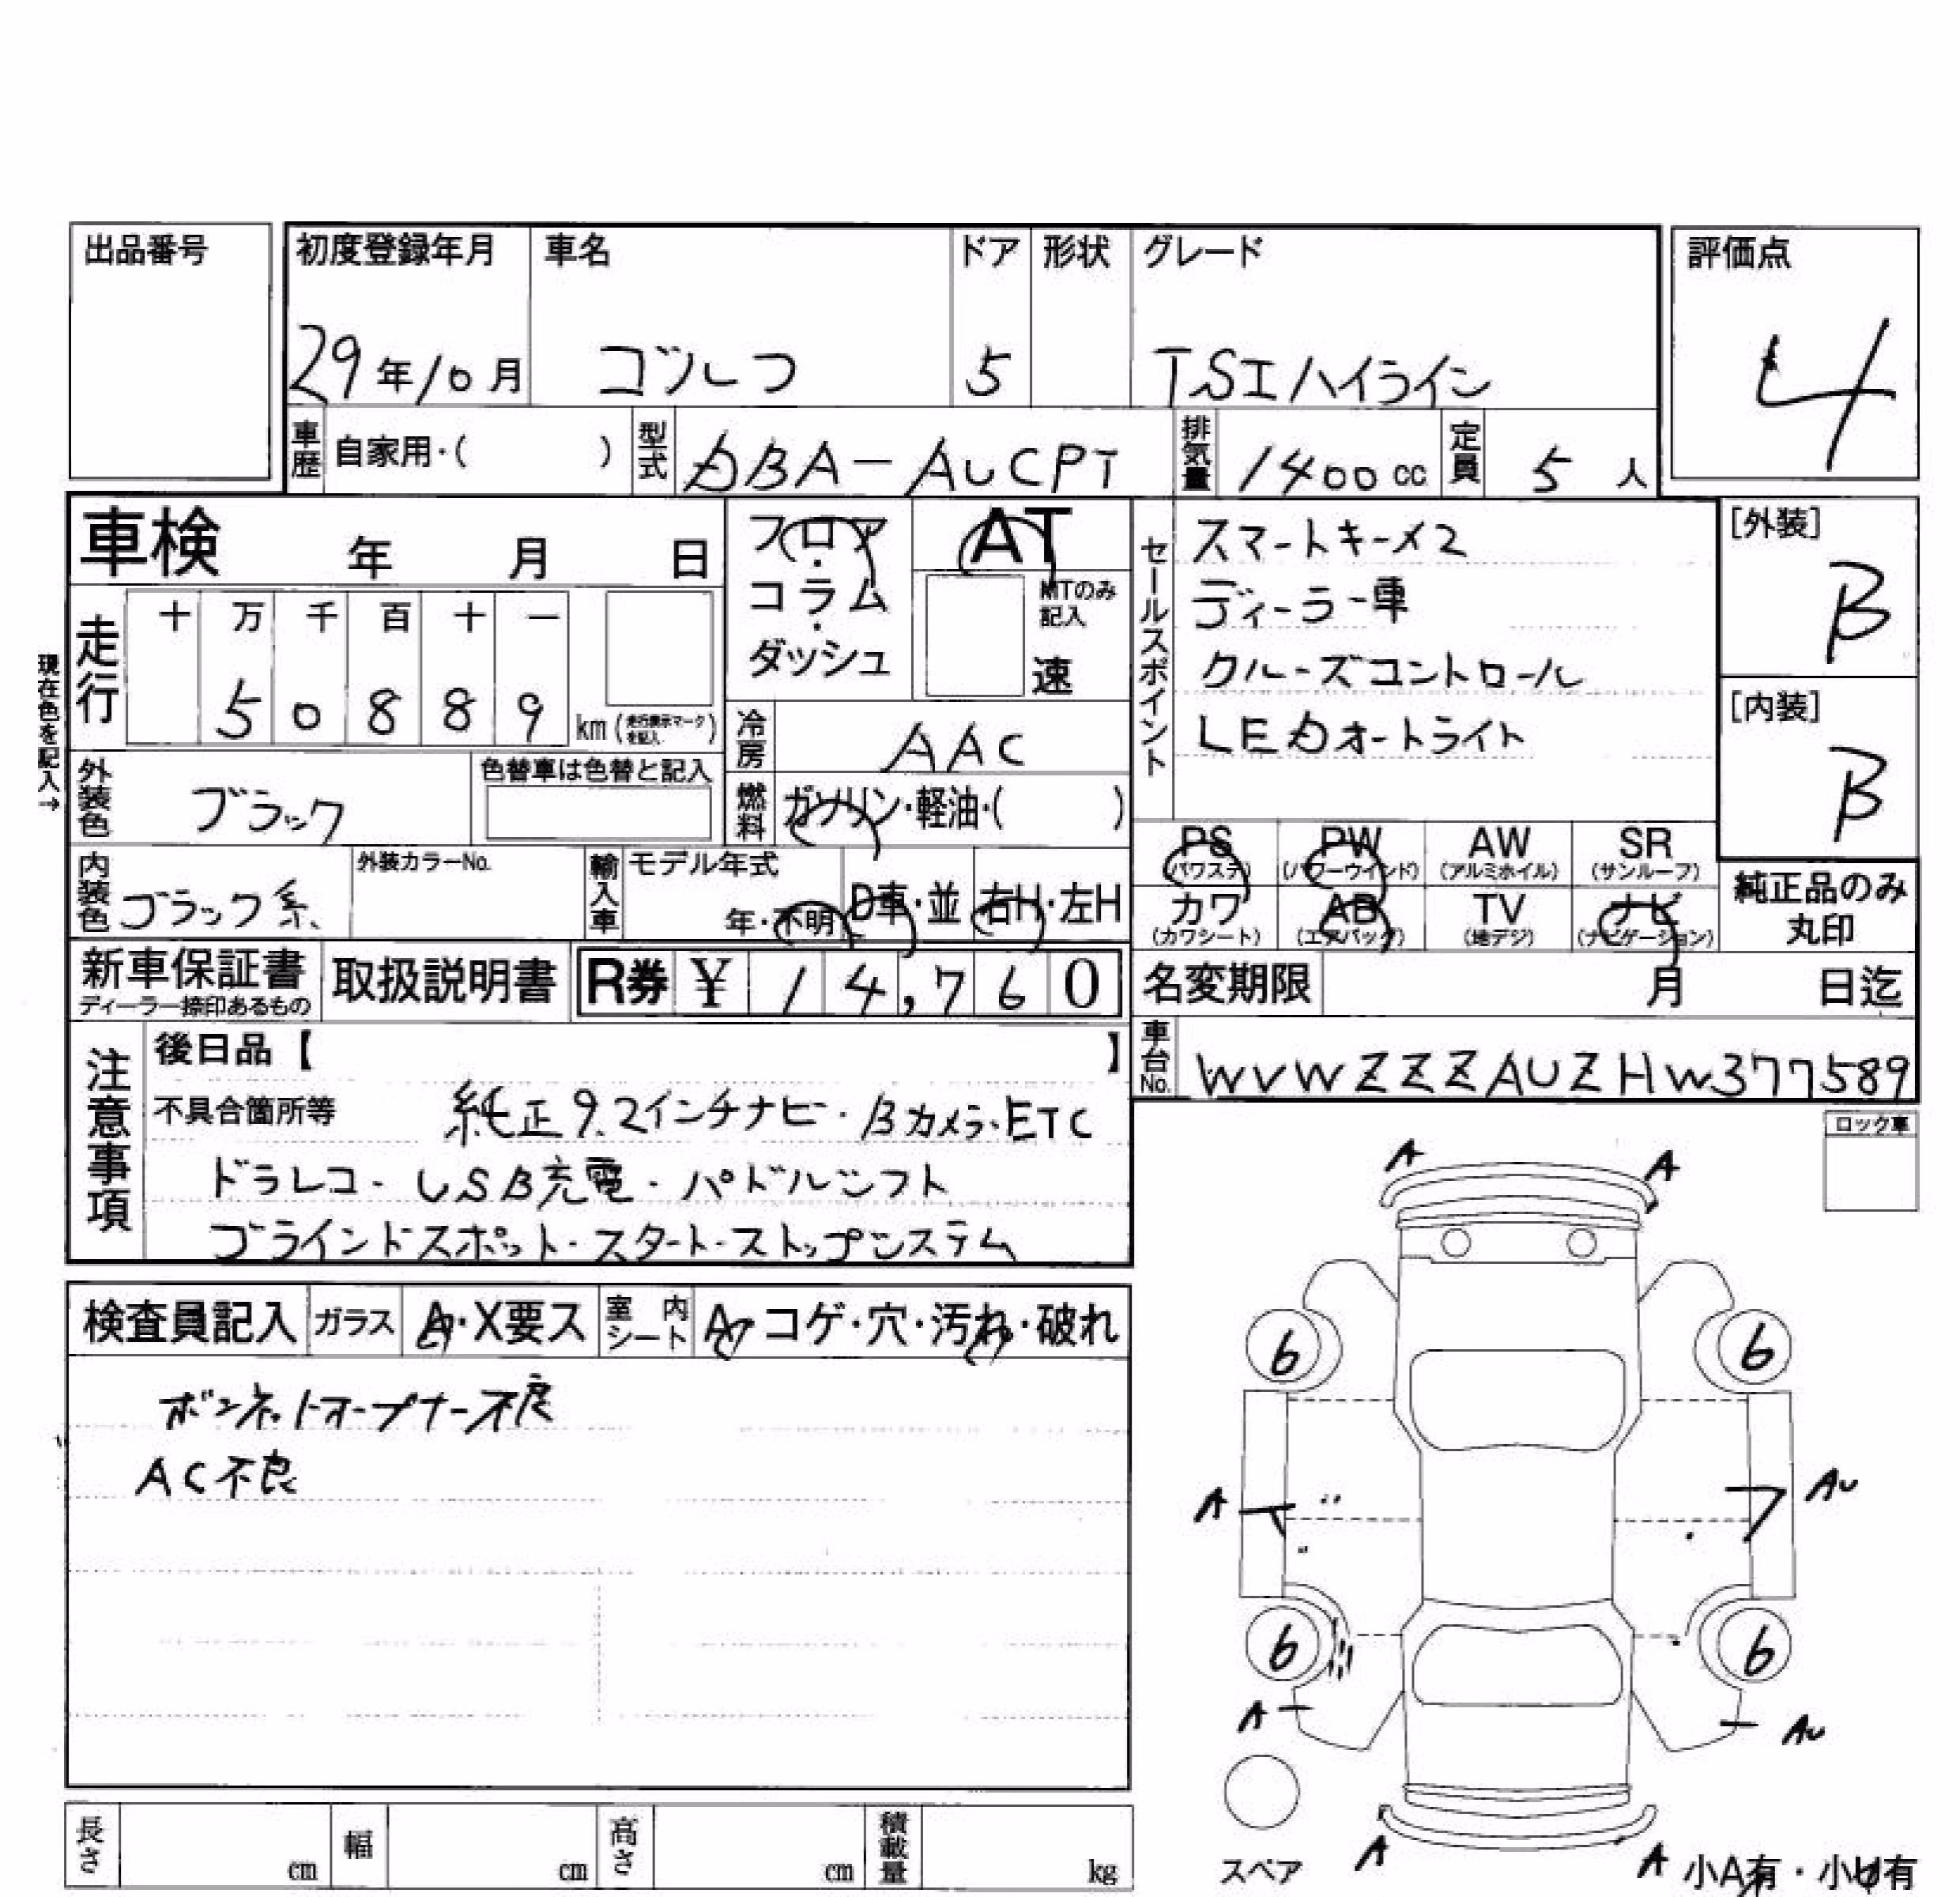 出品番号
初度登録年月 車名 ドア 形状 グレード 評価点
29年10月 ゴルフ 5 TSIハイライン 4
車歴 自家用・( ) 型式 DBA-AUCPT 排気量 1400cc 定員 5人
車検 年 月 日
フロア・コラム・ダッシュ
AT
MTのみ記入
速
セールスポイント
スマートキー×2
ディーラー車
クルーズコントロール
LEDオートライト
[外装]
B
[内装]
B
現在色を記入→
走行 十 万 千 百 十 一
5 0 8 8 9 km (走行表示マークを記入)
冷房 AAC
外装色 ブラック 色替車は色替と記入
燃料 ガソリン・軽油・( )
PS PW AW SR
(パワステ) (パワーウインド) (アルミホイル) (サンルーフ)
カワ AB TV ナビ
(カワシート) (エアバッグ) (地デジ) (ナビゲーション)
純正品のみ
丸印
内装色 ブラック系 外装カラーNo. 輸入車 モデル年式 年・不明 D車・並 右H・左H
新車保証書 取扱説明書 R券 ¥ 14,760 名変期限 月 日迄
ディーラー捺印あるもの
車台No. WVWZZZAUZHW377589
注意事項
後日品【 】
不具合箇所等 純正9.2インチナビ・Bカメラ・ETC
ドラレコ・USB充電・パドルシフト
ブラインドスポット・スタート・ストップシステム
ロック車
検査員記入 ガラス A・X要ス 室内シート A コゲ・穴・汚れ・破れ
ボンネットオープナー不良
AC不良
A A
6 6
A AU
6 6
A AU
スペア
A A 小A有・小U有
長さ cm 幅 cm 高さ cm 積載量 kg